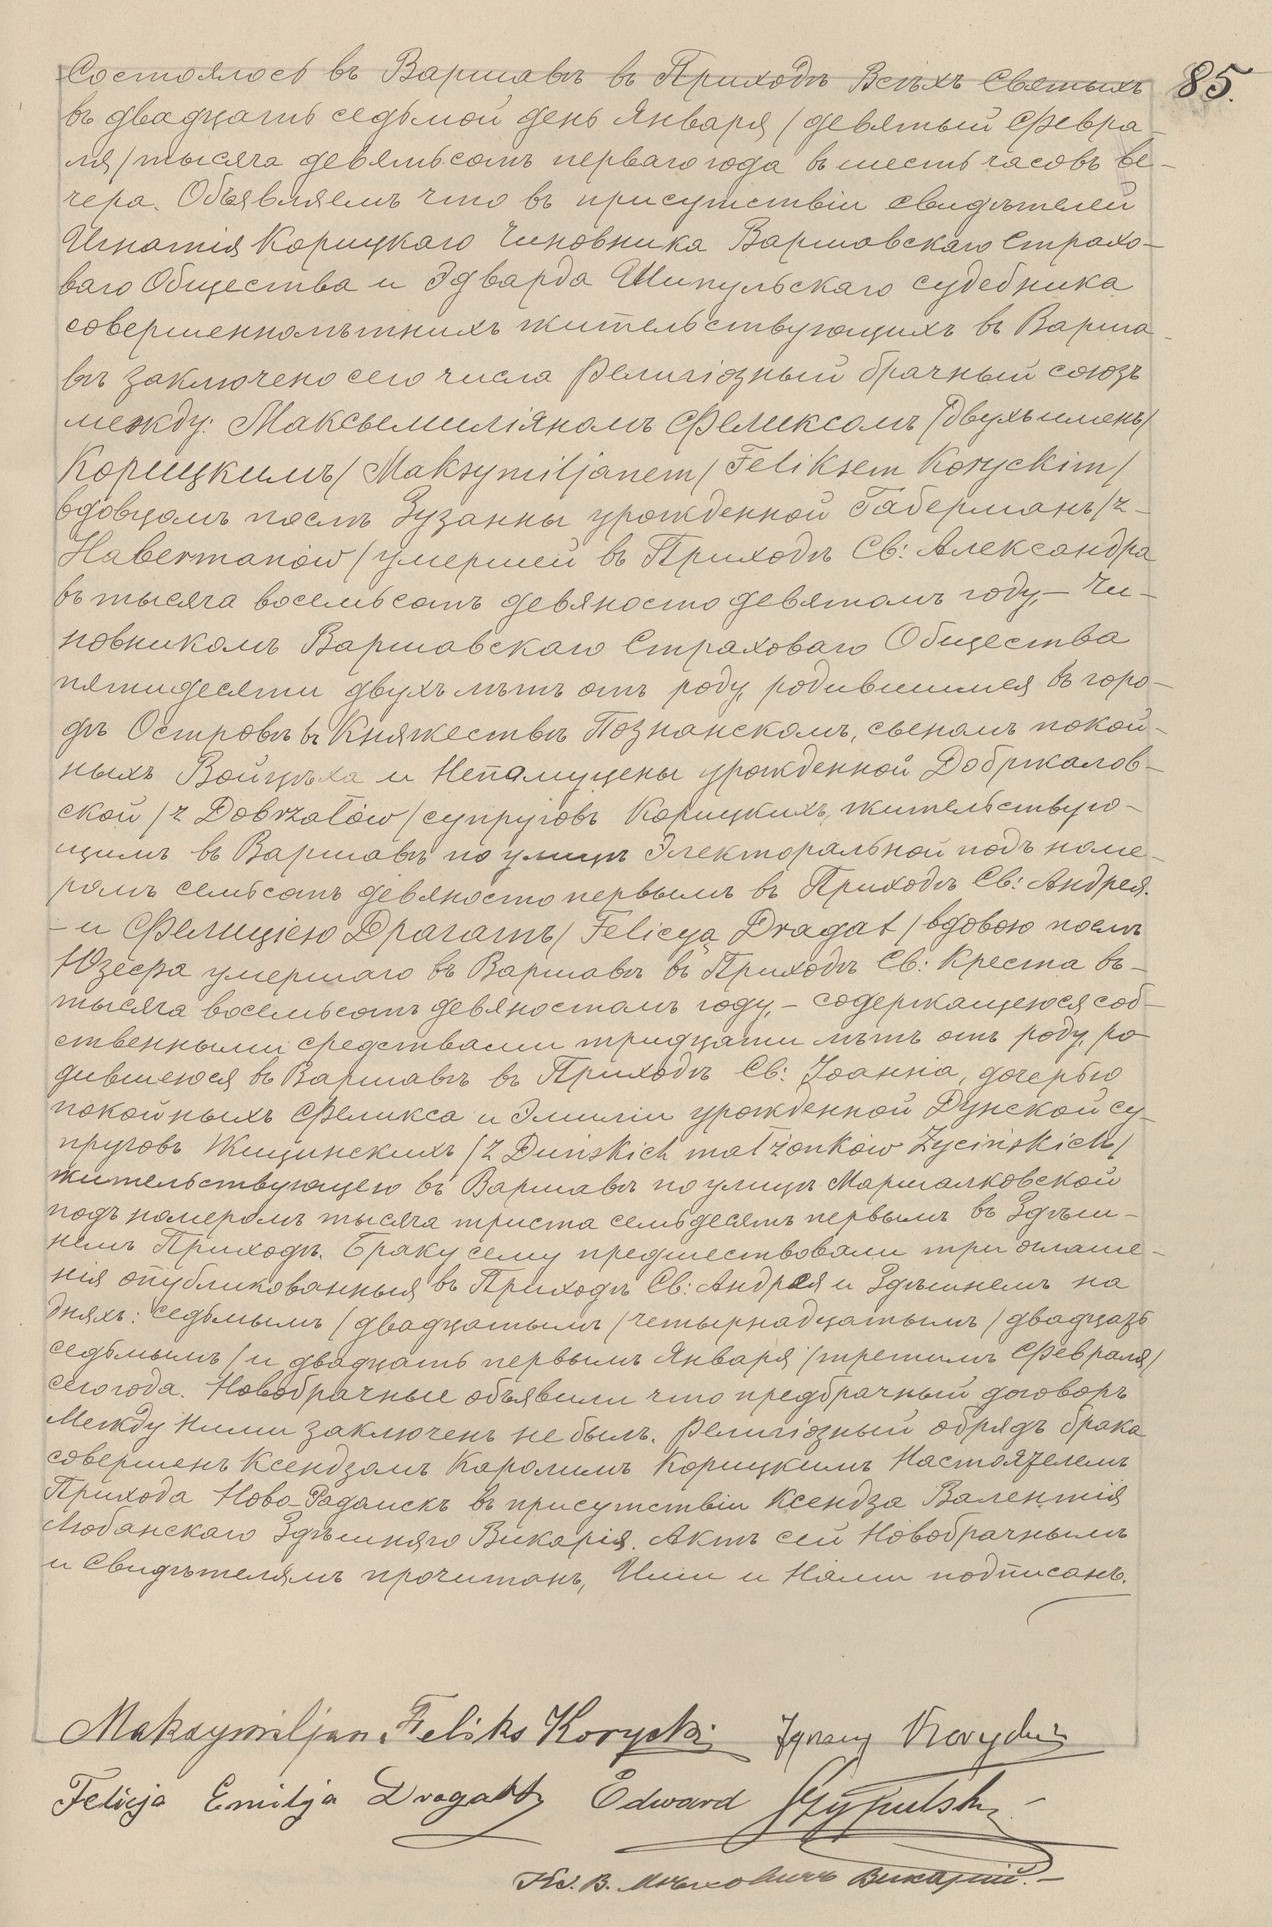 Состоялось въ Варшавѣ въ Приходѣ Всѣхъ Святыхъ
85.
въ двадцать седьмой день Января /девятый Февра-
ля/ тысяча девятьсотъ перваго года въ шесть часовъ ве-
чера. Объявляемъ что въ присутствіи свидѣтелей
Игнатія Корицкаго Чиновника Варшавскаго Страхо-
ваго Общества и Эдварда Шипульскаго судебника
совершеннолѣтнихъ жительствующихъ въ Варша-
вѣ заключено сего числа Религіозный брачный союзъ
между: Максымиліяномъ Феликсомъ /двухъ именъ/
Корицкимъ / Maksymiljanem / Feliksem Koryckim /
вдовцомъ послѣ Зузанны урожденной Габерманъ /z-
Habermanów / умершей въ Приходѣ Св: Александра
въ тысяча восемьсотъ девяносто девятомъ году, - Чи-
новникомъ Варшавскаго Страховаго Общества
пятидесяти двухъ лѣтъ отъ роду, родившимся въ горо-
дѣ Островѣ въ Княжествѣ Познанскомъ, сыномъ покой-
ныхъ Войцѣха и Непомуцены урожденной Добржалов-
ской / z Dobrzałów / супруговъ Корицкихъ, жительствую-
щимъ въ Варшавѣ по улицѣ Электоральной подъ номе-
ромъ семьсотъ девяносто первымъ въ Приходѣ Св: Андрея.
- и Фелициею Драгатъ / Felicyą Dragat / вдовою послѣ
Юзефа умершаго въ Варшавѣ въ Приходѣ Св: Креста въ-
тысяча восемьсотъ девяностомъ году, - содержащеюся соб-
ственными средствами тридцати лѣтъ отъ роду, ро-
дившеюся въ Варшавѣ въ Приходѣ Св: Іоанна, дочерью
покойныхъ Феликса и Эмиліи урожденной Дунской су-
пруговъ Жицинскихъ / z Duńskich małżonków Życińskich /
жительствующею въ Варшавѣ по улицѣ Маршалковской
подъ номеромъ тысяча триста семьдесятъ первымъ въ Здѣш-
немъ Приходѣ. Браку сему предшествовали три оглаше-
нія опубликованныя въ Приходѣ Св: Андрея и Здѣшнемъ на
дняхъ: седьмымъ /двадцатымъ/ четырнадцатымъ /двадцать
седьмымъ/ и двадцать первымъ Января /третимъ Февраля/
сего года. Новобрачные объявили что предбрачный договоръ
Между ними заключенъ не былъ. Религіозный обрядъ брака
совершенъ Ксендзомъ Каролимъ Корицкимъ Настоятелемъ
Прихода Ново-Радомскъ въ присутствіи Ксендза Валентія
Любанскаго Здѣшняго Викарія. Актъ сей Новобрачнымъ
и Свидѣтелямъ прочитанъ, Ими и Нами подписанъ.
Maksymiljan Feliks Korycki Ignacy Korycki
Felicja Emilja Dragatt Edward Szypulski
Кс. В. Викарій.